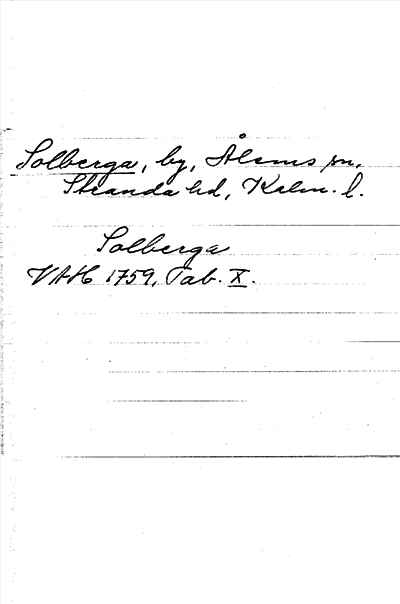 Solberga, by, Ålems sn,
Stranda hd, Kalm. l.
Solberga
VAH 1759, Tab. X.